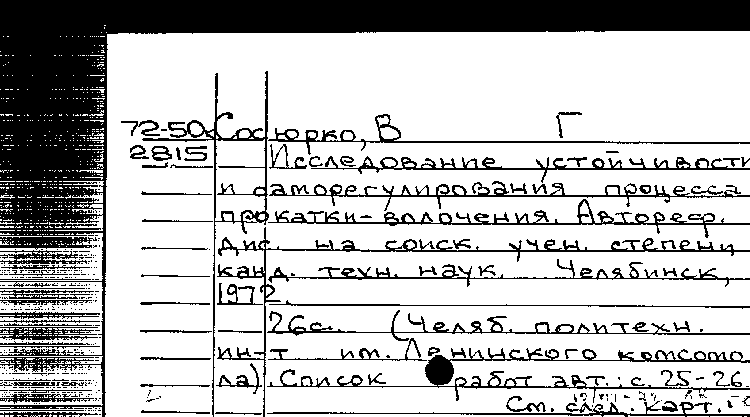 72-50 Сосюрко, В Г
2815 Исследование устойчивости
и саморегулирования процесса
прокатки-волочения. Автореф.
дис. на соиск. учен. степени
канд. техн. наук. Челябинск,
1972.
26с. (Челяб. политехн.
ин-т им. Ленинского комсомо
ла). Список работ авт.: с. 25-26
См. след. карт.